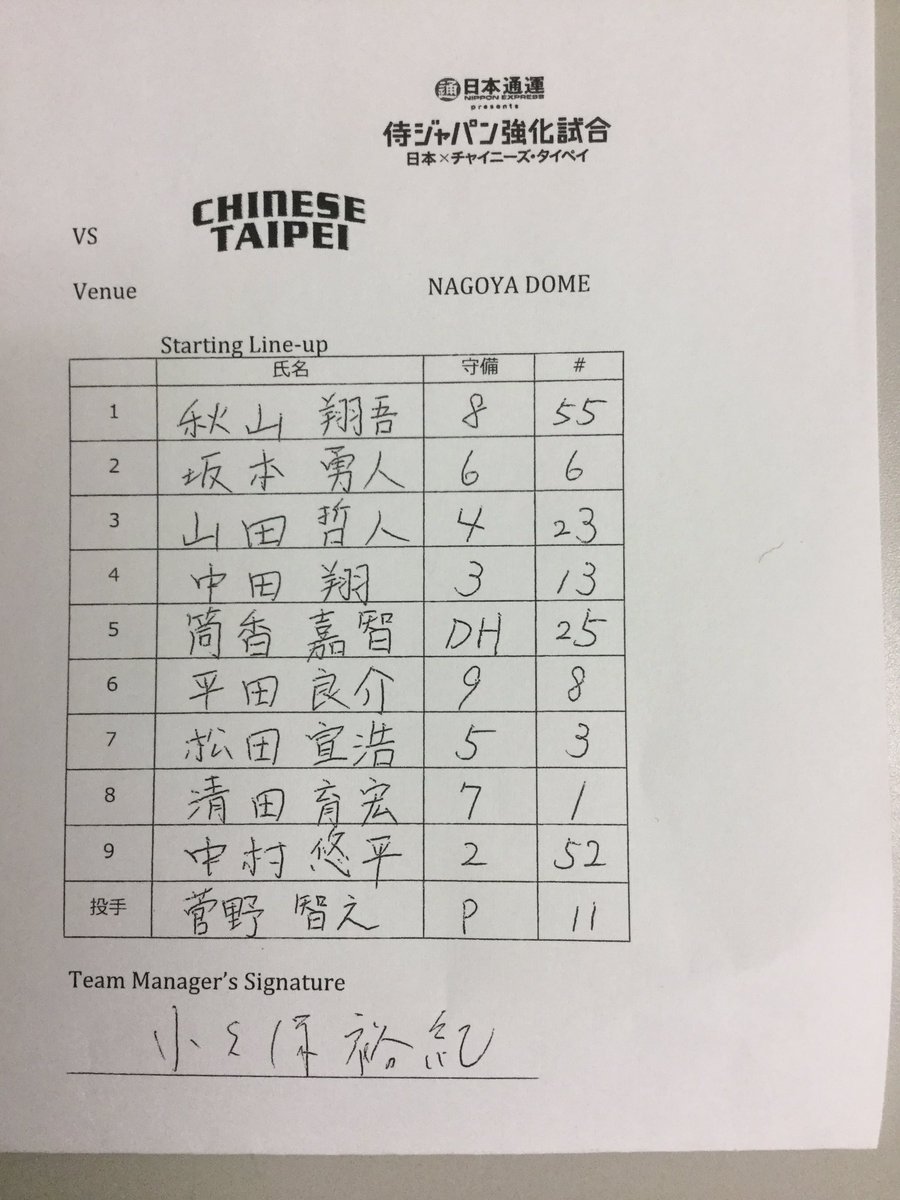 通 日本通運
NIPPON EXPRESS
presents
侍ジャパン強化試合
日本×チャイニーズ・タイペイ
VS CHINESE TAIPEI
Venue NAGOYA DOME
Starting Line-up
氏名 守備 #
1 秋山 翔吾 8 55
2 坂本 勇人 6 6
3 山田 哲人 4 23
4 中田 翔 3 13
5 筒香 嘉智 DH 25
6 平田 良介 9 8
7 松田 宣浩 5 3
8 清田 育宏 7 1
9 中村 悠平 2 52
投手 菅野 智之 P 11
Team Manager's Signature
小久保裕紀